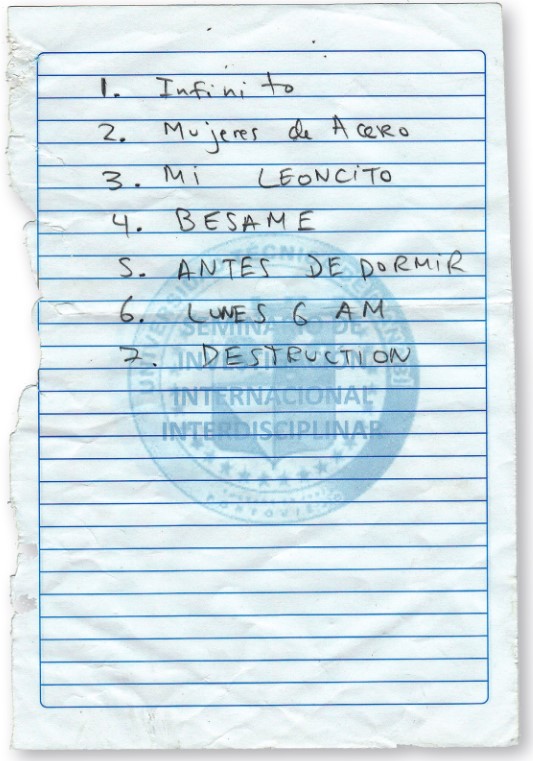 1. Infinito
2. Mujeres de Acero
3. Mi LEONCITO
4. BESAME
5. ANTES DE DORMIR
6. LUNES 6 AM
7. DESTRUCTION
SEMINARIO DE
INTERNACIONAL
INTERDISCIPLINAR
PORTOVIEJO